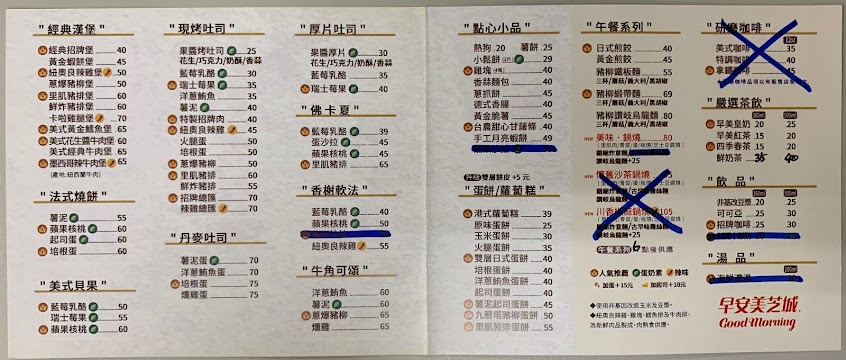 " 經典漢堡 "
經典招牌堡 40
黃金蝦餅堡 45
紐奧良辣雞堡 50
蔥爆豬柳堡 50
里肌豬排堡 60
鮮炸豬排堡 60
卡啦雞腿堡 70
美式黃金鱈魚堡 65
美式花生醬牛肉堡 65
美式經典牛肉堡 65
墨西哥辣牛肉堡 65
(產地:紐西蘭牛肉)
" 法式燒餅 "
薯泥 55
蘋果核桃 60
起司蛋 60
培根蛋 60
" 美式貝果 "
藍莓乳酪 50
瑞士莓果 55
蘋果核桃 60
" 現烤吐司 "
果醬烤吐司 25
花生/巧克力/奶酥/香蒜
藍莓乳酪 30
瑞士莓果 35
洋蔥鮪魚 35
薯泥 40
特製招牌 40
紐奧良辣雞 45
火腿蛋 50
培根蛋 50
蔥爆豬柳 50
里肌豬排 60
鮮炸豬排 55
招牌總匯 70
辣雞總匯 70
" 丹麥吐司 "
薯泥蛋 70
洋蔥鮪魚蛋 70
培根蛋 75
燻雞蛋 75
" 厚片吐司 "
果醬厚片 30
花生/巧克力/奶酥/香蒜
藍莓乳酪 35
瑞士莓果 40
" 佛卡夏 "
藍莓乳酪 39
蛋沙拉 45
蘋果核桃 45
培根蛋 45
" 香榭軟法 "
藍莓乳酪 40
蘋果核桃 50
紐奧良辣雞 55
" 牛角可頌 "
洋蔥鮪魚 60
薯泥 60
蔥爆豬柳 65
燻雞 65
" 點心小品 "
熱狗 20 薯餅 25
小鬆餅 29
雞塊 40
香蒜麵包 40
蔥抓餅 40
德式香腸 40
黃金脆薯 45
台農甜心甘藷條 40
手工月亮蝦餅 49
升級 雙層餅皮 +5 元
" 蛋餅/蘿蔔糕 "
港式蘿蔔糕 39
原味蛋餅 25
玉米蛋餅 30
火腿蛋餅 35
雙層日式蛋餅 40
培根蛋餅 40
洋蔥鮪魚蛋餅 40
起司蛋餅 40
薯泥起司蛋餅 45
九層塔豬柳蛋餅 50
里肌豬排蛋餅 55
" 午餐系列 "
日式煎餃 40
黃金煎餃 45
豬柳鐵板麵 55
三杯/蘑菇/義大利/黑胡椒
豬柳緞帶麵 69
三杯/蘑菇/義大利/黑胡椒
豬柳讚岐烏龍麵 80
三杯/蘑菇/義大利/黑胡椒
NEW 美味·鍋燒 80
讚岐烏龍麵+25
NEW 懷舊沙茶鍋燒 85
讚岐烏龍麵+25
NEW 川香麻辣鍋燒 105
讚岐烏龍麵+25
午餐系列 6 點後供應
人氣推薦 蛋奶素 辣味
加蛋+15元 加起司+10元
◆使用非基因改造玉米及豆漿。
◆紐奧良辣雞、雞塊、鱈魚排及牛肉排,
為新鮮肉品製成,肉熟食供應。
" 研磨咖啡 "
美式咖啡 35
特調咖啡 40
拿鐵咖啡 45
" 嚴選茶飲 "
早美皇奶 20 25
早美紅茶 15 20
四季春茶 15 20
鮮奶茶 35 40
" 飲 品 "
非基改豆漿 20 25
可可亞 25 30
招牌咖啡 25 30
" 湯 品 "
早安美芝城
Good Morning